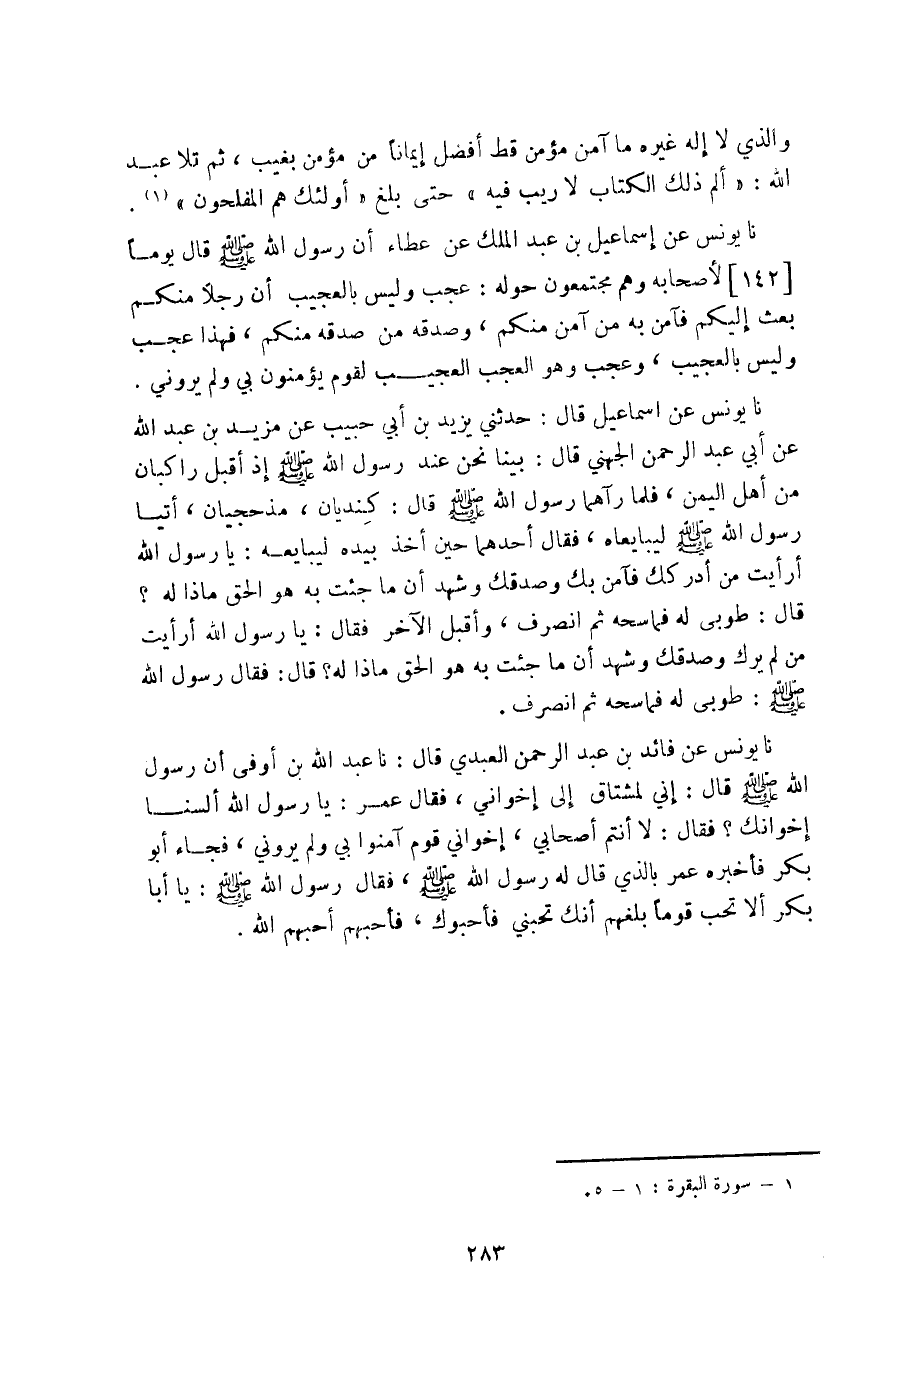 والذي لا إله غيره ما آمن مؤمن قط أفضل إيماناً من مؤمن بغيب ، ثم تلا عبـد
الله : « ألم ذلك الكتاب لا ريب فيه » حتى بلغ « أولئك هم المفلحون » (١) .
نا يونس عن إسماعيل بن عبد الملك عن عطاء أن رسول الله ﷺ قال يومـاً
[١٤٢] لأصحابه وهم مجتمعون حوله : عجب وليس بالعجيب أن رجلاً منكـم
بعث إليكم فآمن به من آمن منكم ، وصدقه من صدقه منكم ، فهذا عجـب
وليس بالعجيب ، وعجب وهو العجب العجيـــب لقوم يؤمنون بي ولم يروني .
نا يونس عن اسماعيل قال : حدثني يزيد بن أبي حبيب عن مزيـد بن عبد الله
عن أبي عبد الرحمن الجهني قال : بينا نحن عند رسول الله ﷺ إذ أقبل راكبان
من أهل اليمن ، فلما رآهما رسول الله ﷺ قال : كِنديان ، مذحجيان ، أتيـا
رسول الله ﷺ ليبايعاه ، فقال أحدهما حين أخذ بيده ليبايعـه : يا رسول الله
أرأيت من أدركك فآمن بك وصدقك وشهد أن ما جئت به هو الحق ماذا له ؟
قال : طوبى له فماسحه ثم انصرف ، وأقبل الآخر فقال : يا رسول الله أرأيت
من لم يرك وصدقك وشهد أن ما جئت به هو الحق ماذا له؟ قال: فقال رسول الله
ﷺ : طوبى له فماسحه ثم انصرف .
نا يونس عن فائد بن عبد الرحمن العبدي قال : نا عبد الله بن أوفى أن رسول
الله ﷺ قال : إني لمشتاق إلى إخواني ، فقال عمـر : يا رسول الله ألسنـــا
إخوانك ؟ فقال : لا أنتم أصحابي ، إخواني قوم آمنوا بي ولم يروني ، فجـاء أبو
بكر فأخبره عمر بالذي قال له رسول الله ﷺ ، فقال رسول الله ﷺ : يا أبا
بكر ألا تحب قوماً بلغهم أنك تحبني فأحبوك ، فأحبهم أحبهم الله .
١ – سورة البقرة : ١ – ٥.
٢٨٣